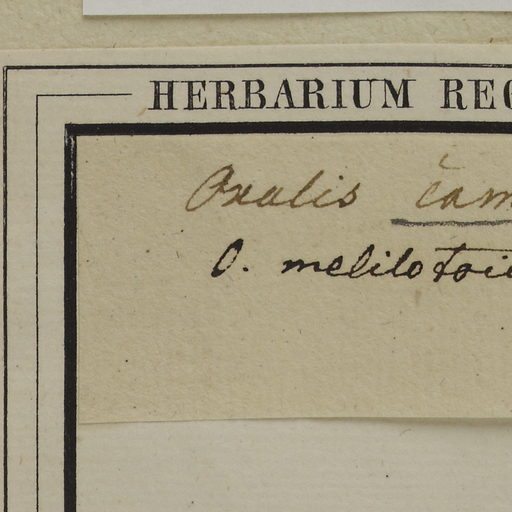 HERBARIUM REG
Oxalis cam
O. melilotoi